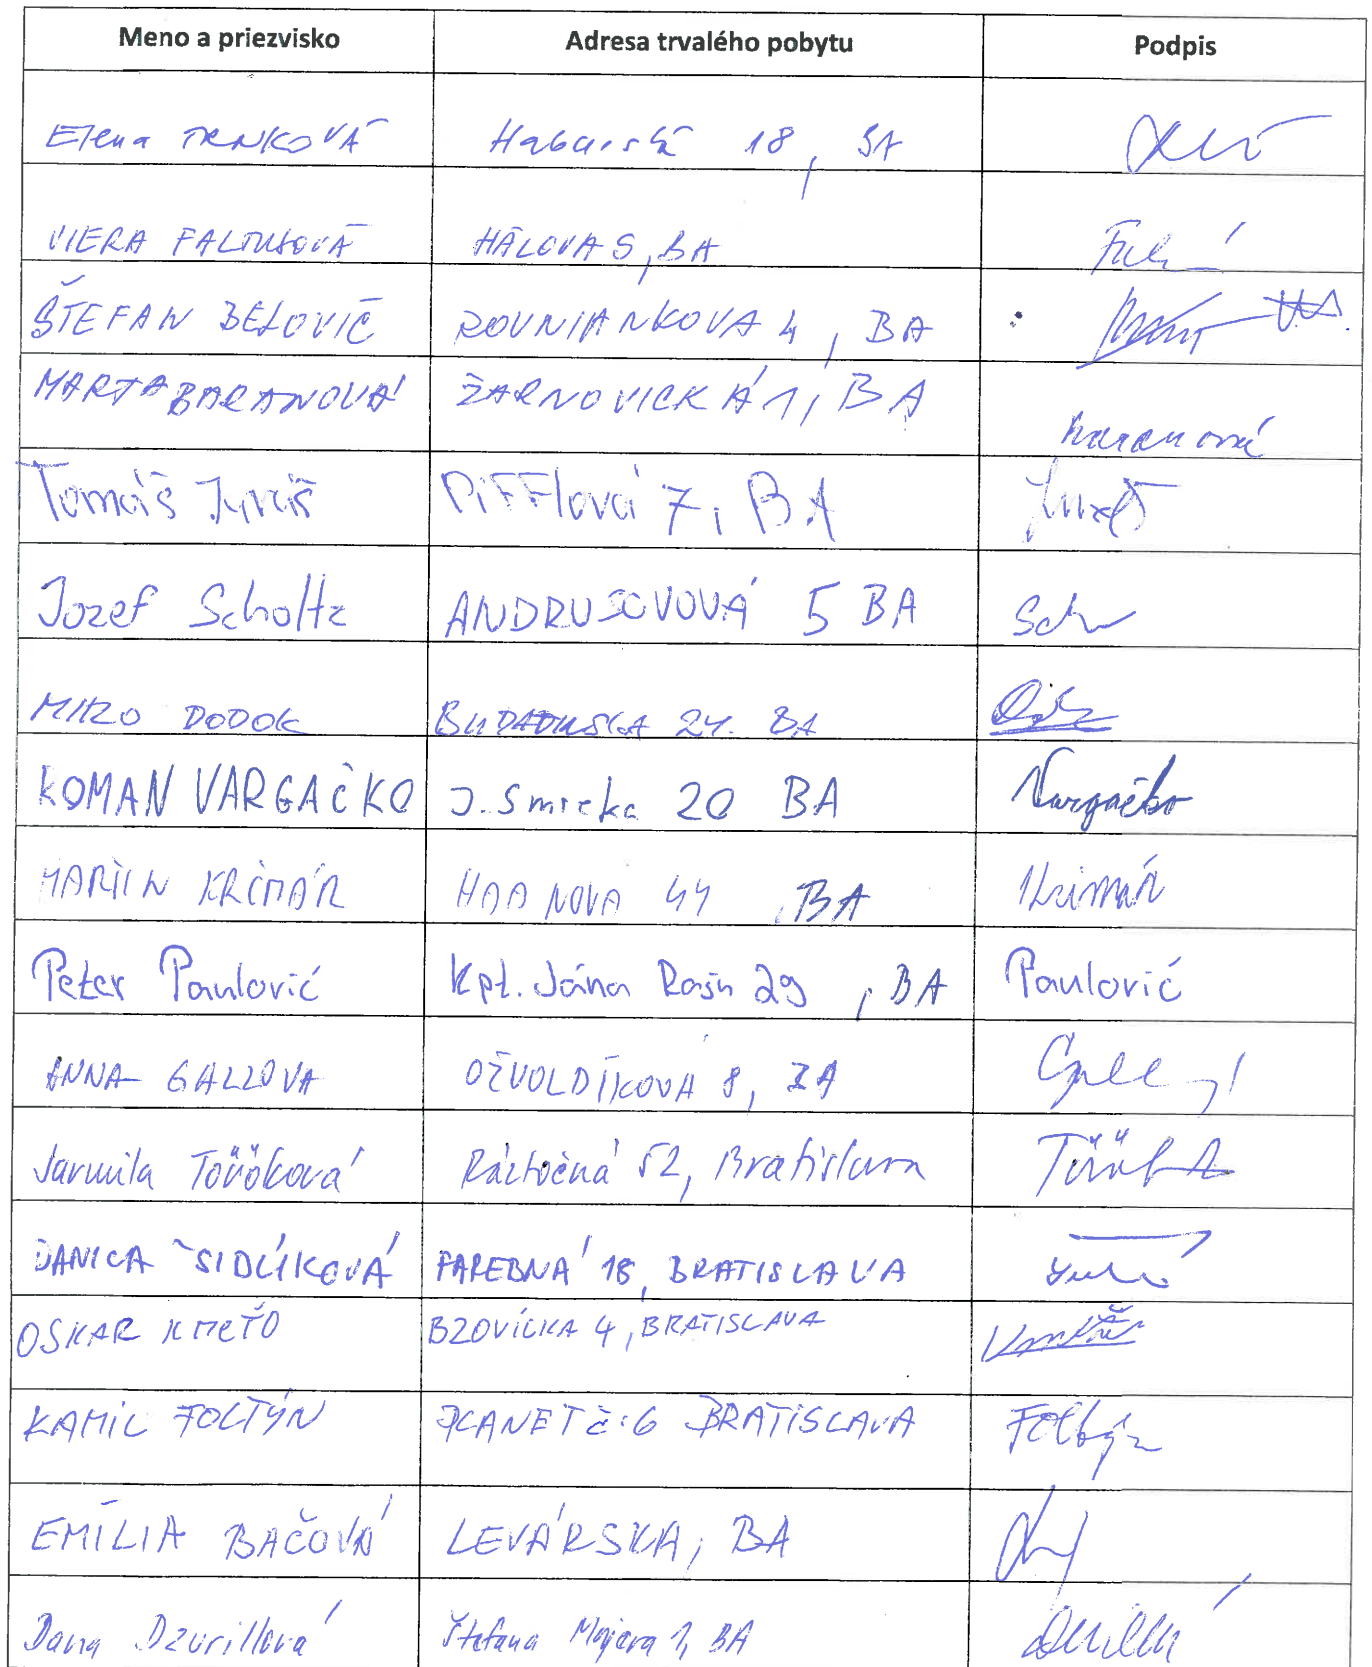 Meno a priezvisko Adresa trvalého pobytu Podpis
Elena TRNKOVÁ 18, BA
VIERA FALTUSOVÁ HÁLOVA 5, BA
ŠTEFAN BELOVIČ ROVNIANKOVA 4, BA
MARTA BARANOVÁ ŽARNOVICKÁ 1, BA Baranová
Tomáš Juráš PiFFlová 7, BA
Jozef Scholtz ANDRUSOVOVÁ 5 BA Sch
MIRO DODOK 24. BA
ROMAN VARGAČKO J. Smreka 20 BA Vargačko
MARTIN KRČMÁR HAANOVA 44, BA Krčmár
Peter Paulovič Kpt. Jána Rašu 29, BA Paulovič
ANNA GALLOVA OŽVOLDÍKOVA 8, BA
Jarmila Törökövá Ráztočná 52, Bratislava
DANICA ŠIDLÍKOVÁ FAREBNÁ 18, BRATISLAVA
OSKAR KMEŤO BZOVÍCKA 4, BRATISLAVA
KAMIL FOLTÝN PLANÉT č. 6 BRATISLAVA Foltýn
EMÍLIA BAČOVÁ LEVÁRSKA, BA
Dana Dzurillová Štefana Majera 1, BA